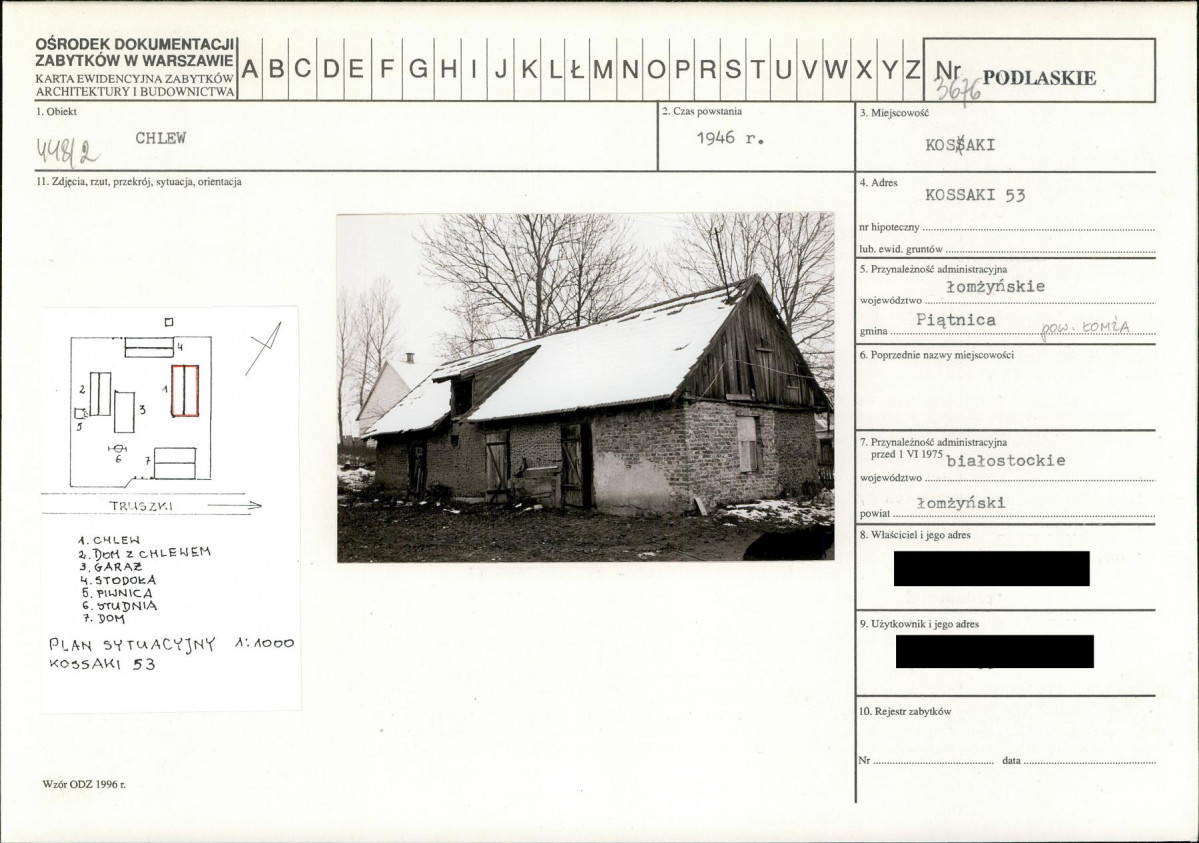 OŚRODEK DOKUMENTACJI
ZABYTKÓW W WARSZAWIE
KARTA EWIDENCYJNA ZABYTKÓW
ARCHITEKTURY I BUDOWNICTWA
A B C D E F G H I J K L Ł M N O P R S T U V W X Y Z
Nr 3676 PODLASKIE
1. Obiekt
448/2 CHLEW
2. Czas powstania
1946 r.
3. Miejscowość
KOSSAKI
4. Adres
KOSSAKI 53
nr hipoteczny
lub. ewid. gruntów
5. Przynależność administracyjna
województwo łomżyńskie
gmina Piątnica pow. ŁOMŻA
6. Poprzednie nazwy miejscowości
7. Przynależność administracyjna
przed 1 VI 1975
województwo białostockie
powiat łomżyński
8. Właściciel i jego adres
9. Użytkownik i jego adres
10. Rejestr zabytków
Nr data
11. Zdjęcia, rzut, przekrój, sytuacja, orientacja
4
2
1
3
5
6
7
TRUSZKI
1. CHLEW
2. DOM Z CHLEWEM
3. GARAŻ
4. STODOŁA
5. PIWNICA
6. STUDNIA
7. DOM
PLAN SYTUACYJNY 1:1000
KOSSAKI 53
Wzór ODZ 1996 r.